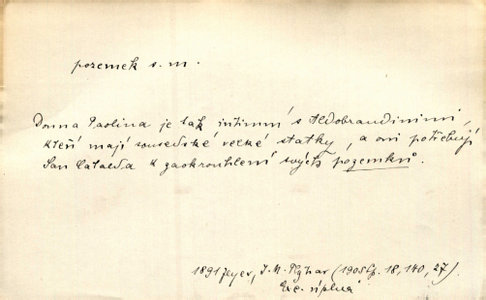 pozemek s. m.
Donna Paolina je tak intimní s Aldobrandinimi,
kteří mají sousedské velké statky, a oni potřebují
San Catalda k zaokrouhlení svých pozemků.
1891 Heyse, J. M. Klykar (1905 Sp. 18, 140, 27)
Exc. úplná